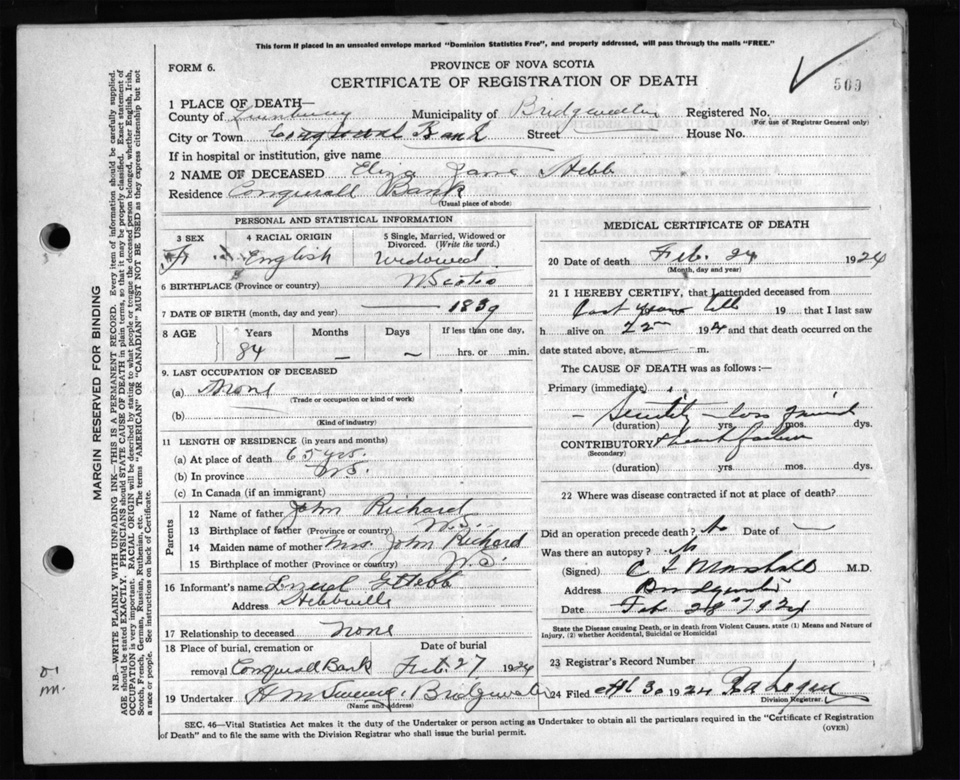 This form if placed in an unsealed envelope marked "Dominion Statistics Free", and properly addressed, will pass through the mails "FREE."
FORM 6.
PROVINCE OF NOVA SCOTIA
CERTIFICATE OF REGISTRATION OF DEATH
509
1 PLACE OF DEATH—
County of Lunenburg Municipality of Bridgewater Registered No.
(For use of Registrar General only)
City or Town Conquerall Bank Street House No.
If in hospital or institution, give name
2 NAME OF DECEASED Eliza Jane Hebb
Residence Conquerall Bank
(Usual place of abode)
PERSONAL AND STATISTICAL INFORMATION
3 SEX F
4 RACIAL ORIGIN English
5 Single, Married, Widowed or Divorced. (Write the word.) Widowed
6 BIRTHPLACE (Province or country) N Scotia
7 DATE OF BIRTH (month, day and year) 1839
8 AGE Years 84 Months — Days — If less than one day, hrs. or min.
9. LAST OCCUPATION OF DECEASED
(a) None
(Trade or occupation or kind of work)
(b)
(Kind of industry)
11 LENGTH OF RESIDENCE (in years and months)
(a) At place of death 65 yrs.
(b) In province N.S.
(c) In Canada (if an immigrant)
Parents
12 Name of father John Richard
13 Birthplace of father (Province or country) N.S.
14 Maiden name of mother Mrs. John Richard
15 Birthplace of mother (Province or country) N.S.
16 Informant's name Hebb
Address Hebbville
17 Relationship to deceased None
18 Place of burial, cremation or removal Conquerall Bank Date of burial Feb. 27 1924
19 Undertaker H M Bridgewater
(Name and address)
MEDICAL CERTIFICATE OF DEATH
20 Date of death Feb. 24 1924
(Month, day and year)
21 I HEREBY CERTIFY, that I attended deceased from
19 that I last saw
h alive on 22 192 and that death occurred on the
date stated above, at — m.
The CAUSE OF DEATH was as follows:—
Primary (immediate)
Senility
(duration) yrs. mos. dys.
CONTRIBUTORY heart failure
(Secondary)
(duration) yrs. mos. dys.
22 Where was disease contracted if not at place of death?
Did an operation precede death? No Date of —
Was there an autopsy? No
(Signed) Marshall M.D.
Address Bridgewater
Date Feb 28 1924
State the Disease causing Death, or in death from Violent Causes, state (1) Means and Nature of Injury, (2) whether Accidental, Suicidal or Homicidal
23 Registrar's Record Number
24 Filed 30 1924
Division Registrar.
SEC. 46—Vital Statistics Act makes it the duty of the Undertaker or person acting as Undertaker to obtain all the particulars required in the "Certificate of Registration
of Death" and to file the same with the Division Registrar who shall issue the burial permit.
(OVER)
MARGIN RESERVED FOR BINDING
N.B.—WRITE PLAINLY WITH UNFADING INK—THIS IS A PERMANENT RECORD. Every item of information should be carefully supplied.
AGE should be stated EXACTLY. PHYSICIANS should STATE CAUSE OF DEATH in plain terms, so that it may be properly classified. Exact statement of
OCCUPATION is very important. RACIAL ORIGIN will be described by stating to what people or tongue the deceased person belonged, whether English, Irish,
Scotch, French, German, Russian, Ruthenian, etc. The terms "AMERICAN" OR "CANADIAN" MUST NOT BE USED as they express citizenship but not
a race or people. See instructions on back of Certificate.